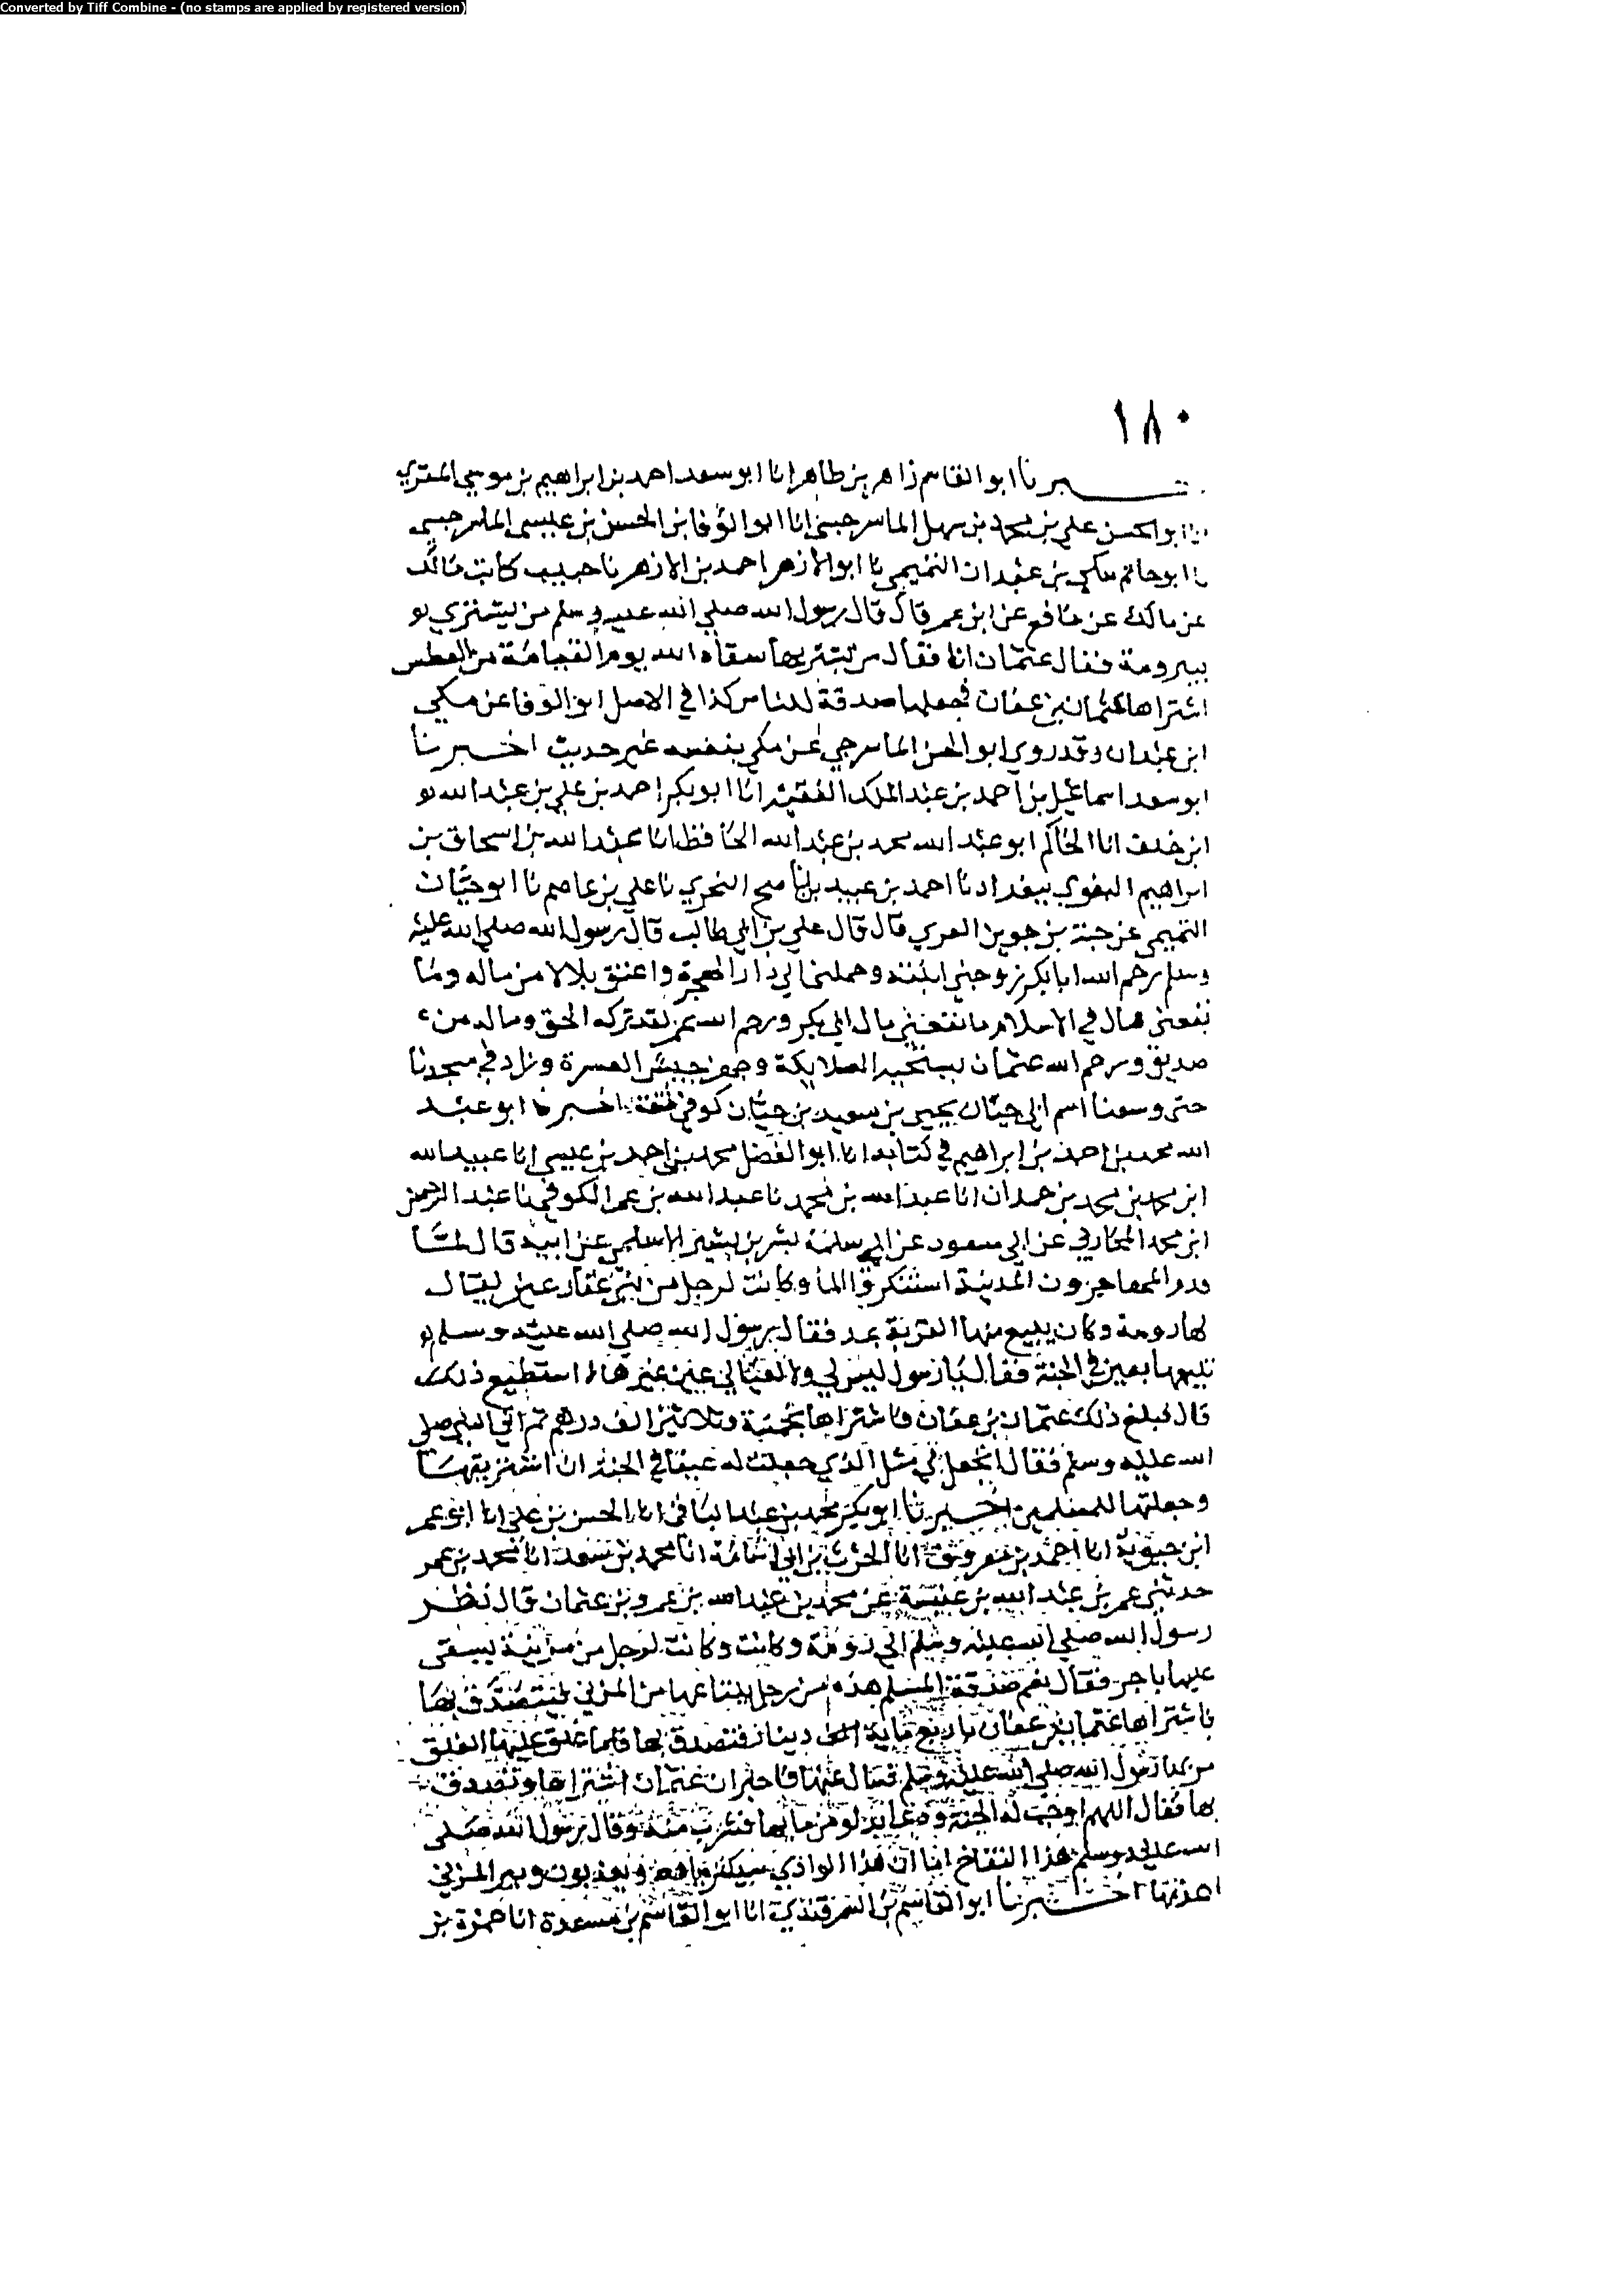 Converted by Tiff Combine - (no stamps are applied by registered version)
١٨٠
برنا ابو القاسم زاهر بن طاهر انا ابو سعد احمد بن ابراهيم بن موسي المقري
ابو الحسن علي بن محمد بن سهل الماسرجسي انا ابو الوفا بن الحسن بن عيسي الماسرجسي
ابو حاتم مكي بن عبدان التميمي نا ابو الازهر احمد بن الازهر نا حبيب كاتب مالك
عن مالك عن نافع عن ابن عمر قال قال رسول الله صلي الله عليه وسلم من يشتري لو
بيرومة فقال عثمان انا فقال من يشتريها سقاه الله يوم القيامة من العطس
اشتراها عثمان بن عفان فجعلها صدقة للناس كذا في الاصل ابو الوفا عن مكي
ابن عبدان وقد روي ابو الحسن الماسرجي عن مكي بنفسه غير حديث اخبرنا
ابو سعد اسماعيل بن احمد بن عبد الملك الفقيه انا ابو بكر احمد بن علي بن عبد الله
ابن خلف انا الحاكم ابو عبد الله محمد بن عبد الله الحافظ انا عبد الله بن اسحاق بن
ابراهيم البغوي ببغداد نا احمد بن عبيد بن ناصح النحوي نا علي بن عاصم نا ابو حيان
التميمي عن حبة بن جوين العرني قال قال علي بن ابي طالب قال رسول الله صلي الله عليه
وسلم رحم الله ابا بكر زوجني ابنته وحملني الي دار الهجرة واعتق بلالا من ماله وما
نفعني مال في الاسلام ما نفعني مال ابي بكر ورحم الله عمر لقد تركه الحق وماله من
صديق ورحم الله عثمان يستحييه الملايكة وجهز جيش العسرة وزاد في مسجدنا
حتى وسعنا اسم ابي حيان يحيى بن سعيد بن حيان كوفي ثقة اخبرنا ابو عبد
الله محمد بن احمد بن ابراهيم في كتابه انا ابو الفضل محمد بن احمد بن عيسي انا عبيد الله
ابن محمد بن محمد بن حمدان انا عبد الله بن محمد نا عبد الله بن عمر الكوفي نا عبد الرحمن
ابن محمد المحاربي عن ابي مسعود عن ابي سلمة بشر بن بشير الاسلمي عن ابيه قال لما
قدم المهاجرون المدينة استنكروا الما وكانت لرجل من بني غفار عين يقال
لها رومة وكان يبيع منها القربة بمد فقال رسول الله صلي الله عليه وسلم
تبيعها بعين في الجنة فقال يا رسول ليس لي ولا لعيالي عين غيرها لا استطيع ذلك
قال فبلغ ذلك عثمان بن عفان فاشتراها بخمسة وثلاثين الف درهم ثم اتي النبي صلي
الله عليه وسلم فقال اتجعل لي مثل الذي جعلت له عينا في الجنة ان اشتريتها
وجعلتها للمسلمين اخبرنا ابو بكر محمد بن عبد الباقي انا الحسن بن علي انا ابو عمر
ابن حيوية انا احمد بن معروف انا الحرث بن ابي اسامة انا محمد بن سعد انا محمد بن عمر
حدثني عمر بن عبد الله بن عنبسة عن محمد بن عبد الله بن عمرو بن عثمان قال نظر
رسول الله صلي الله عليه وسلم الي رومة وكانت وكانت لرجل من مزينة يسقى
عليها باجر فقال نعم صدقة المسلم هذه من رجل يبتاعها من المزني فيتصدق بها
فاشتراها عثمان بن عفان باربع ماية دينار فتصدق بها فلما علق عليها العلق
مر بها رسول الله صلي الله عليه وسلم فسال عنها فاخبر ان عثمان اشتراها وتصدق
بها فقال اللهم اوجب له الجنة ودعا بدلو من مايها فشرب منه وقال رسول الله صلى
الله عليه وسلم هذا النقاخ اما ان هذا الوادي ويعذبون وبير المزني
اعذبها اخبرنا ابو القاسم بن السمرقندي انا ابو القاسم بن مسعدة انا حمزة بن